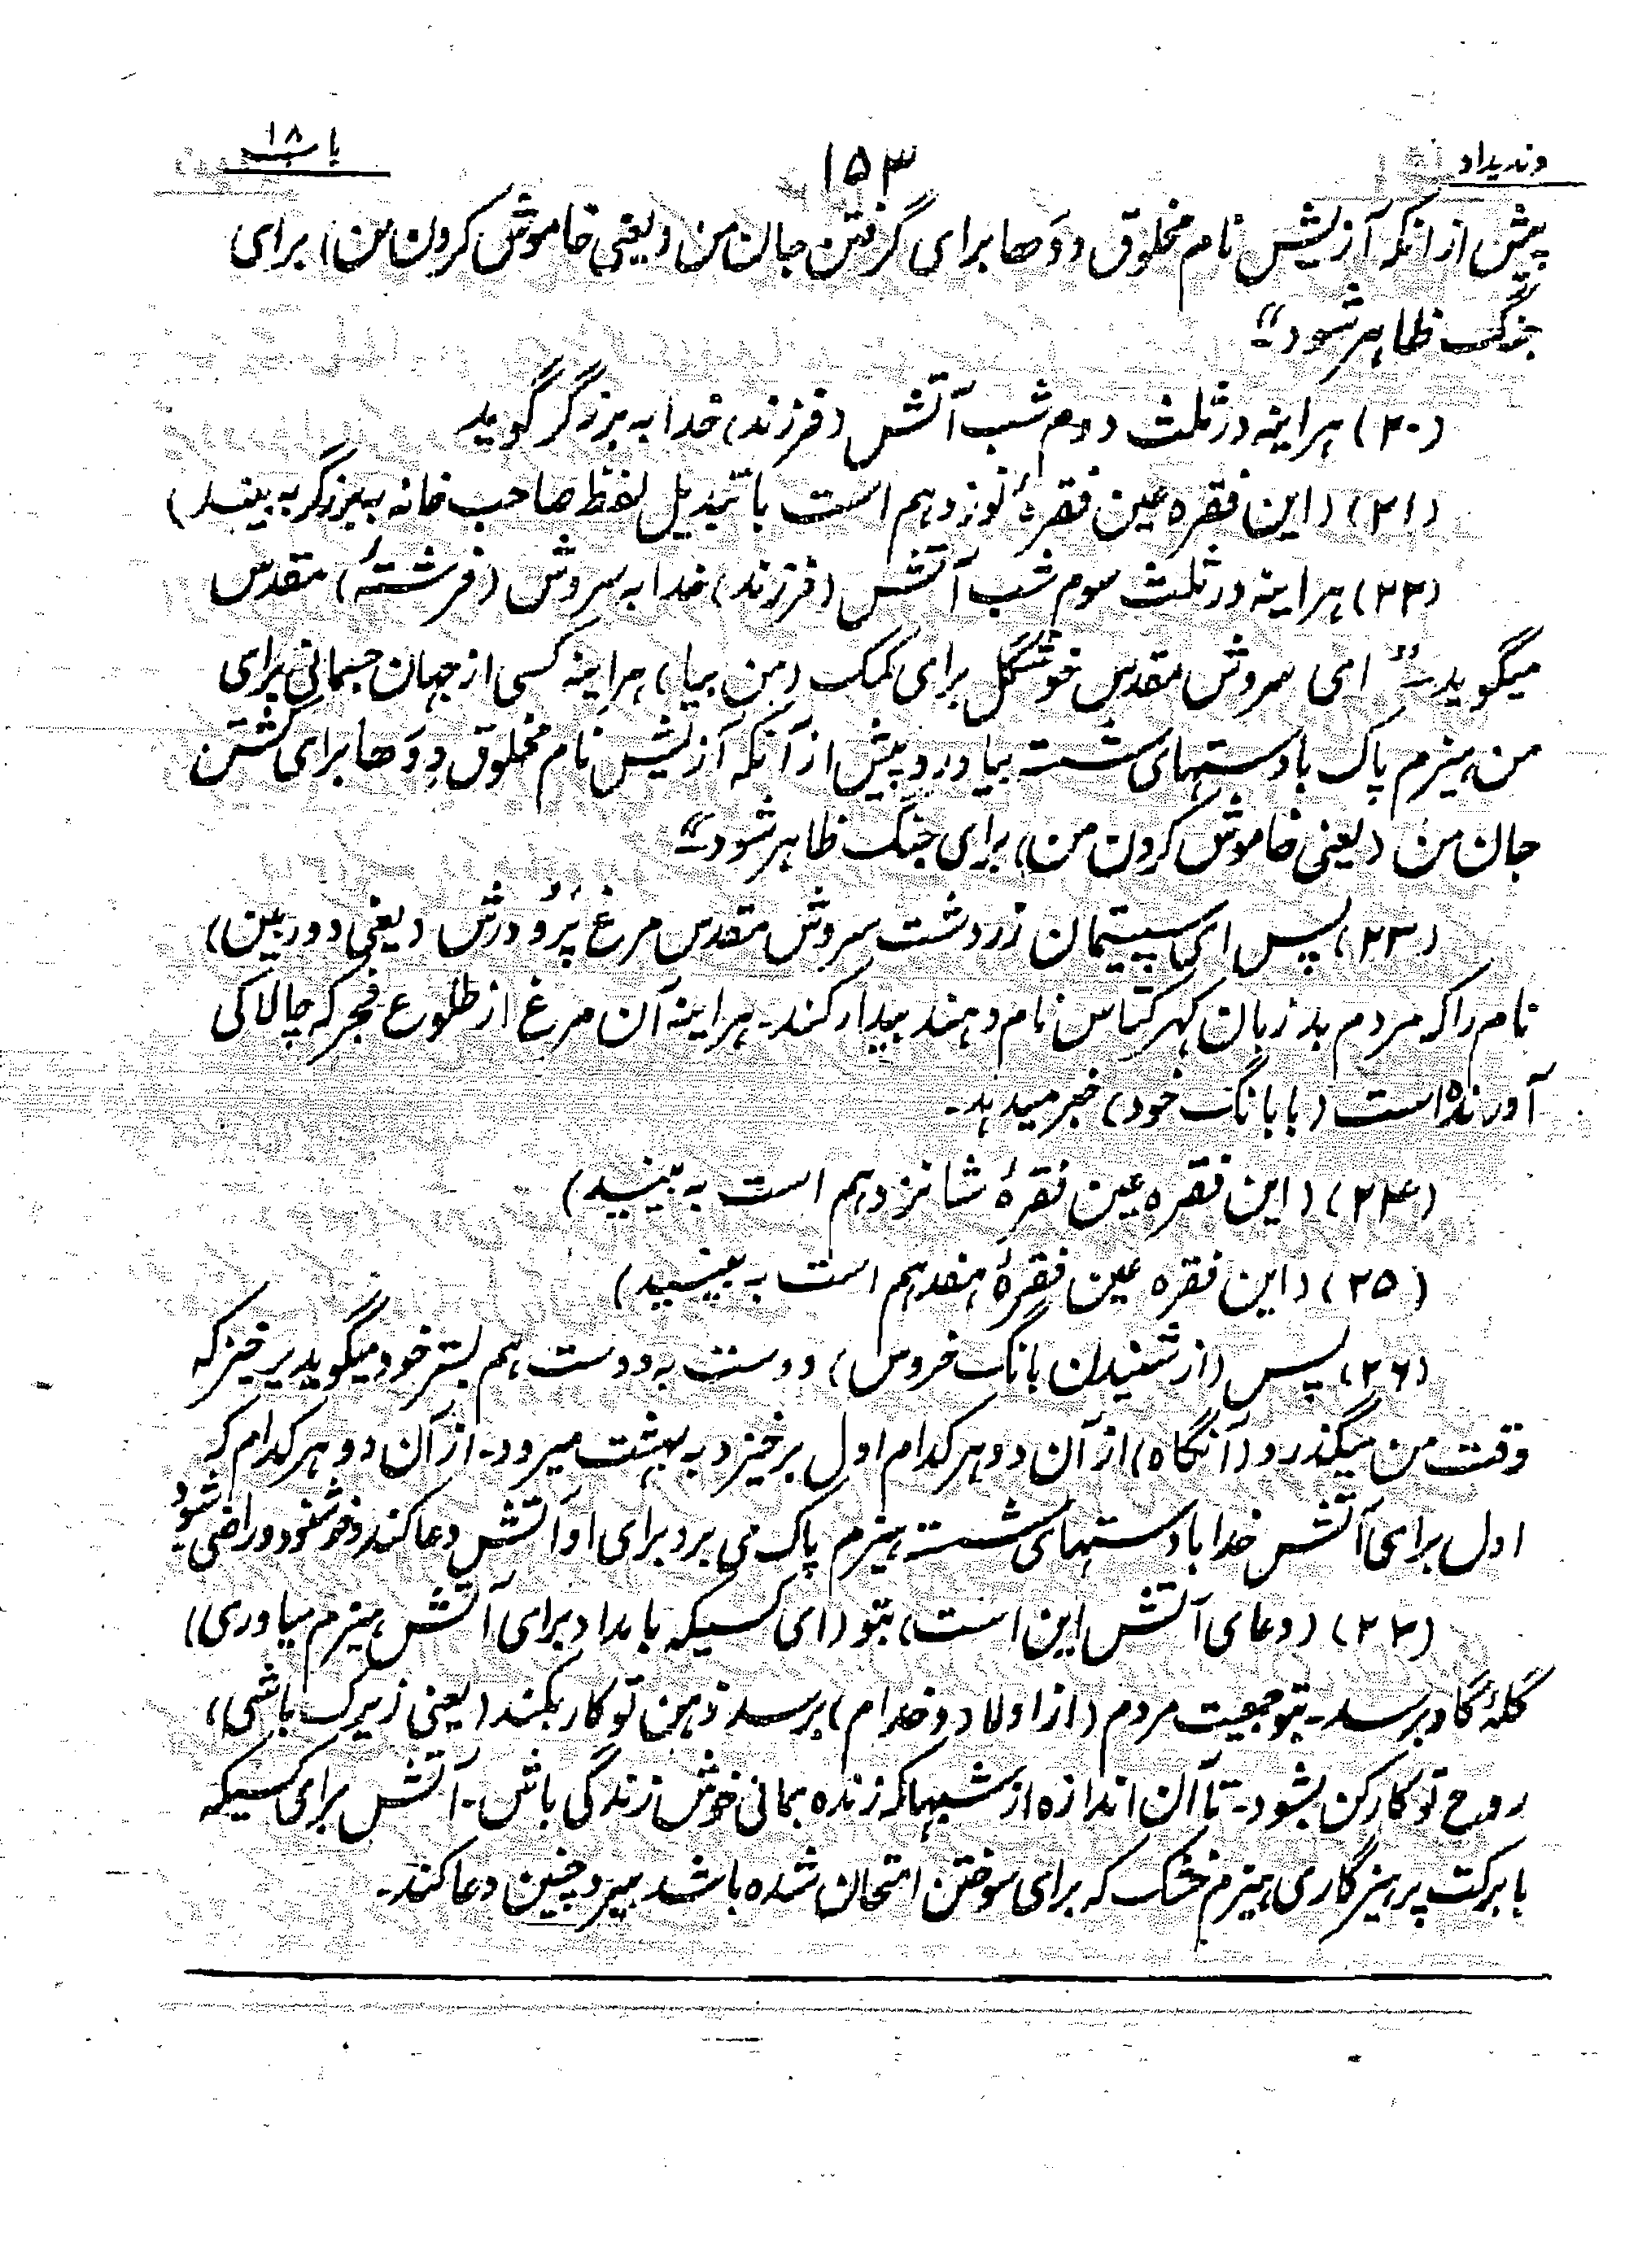 وندیداد ۱۵۳ باب ۱۸
پیش از انکه آزیش نام مخلوق دوَها برای گرفتن جان من (یعنی خاموش کردن من) برای
جنگ ظاهر شود"
(۲۰) هراینه در ثلث دوم شب آتش (فرزند) خدا به برزگر گوید
(۲۱) (این فقره عین فقرهٔ نوزدهم است با تبدیل لفظ صاحب خانه به برزگر به بینید)
(۲۲) هراینه در ثلث سوم شب آتش (فرزند) خدا به سروش (فرشتهٔ) مقدس
میگوید "ای سروش مقدس خوشگل برای کمک (من بیا) هراینه کسی از جهان جسمانی برای
من هیزم پاک با دستهای شسته بیاورد پیش از آنکه آزیش نام مخلوق دِوَها برای کشتن
جان من (یعنی خاموش کردن من) برای جنگ ظاهر شود"
(۲۳) پس ای سپیتمان زردشت سروش مقدس مرغ پَرُودَرْش (یعنی دوربین)
نام را که مردم بد زبان کهرکتاس نام دهند بیدار کند۔ هراینه آن مرغ از طلوع فجر که چالاکی
آورنده است (با بانگ خود) خبر میدهد۔
(۲۴) (این فقره عین فقرهٔ شانزدهم است به بینید)
(۲۵) (این فقره عین فقرهٔ هفدهم است به بینید)
(۲۶) پس (از شنیدن بانگ خروس) دوست به دوست هم بستر خود میگوید برخیز که
وقت من میگذرد (آنگاه) از آن دو هر کدام اول برخیزد به بهشت میرود۔ از آن دو هر کدام که
اول برای آتش خدا با دستهای شسته هیزم پاک می برد برای او آتش دعا کند و خوشنود و راضی شود
(۲۷) (دعای آتش این است) بتو (ای کسیکه بامداد برای آتش هیزم میاوری)
گلهٔ گاو برسد۔ بتو جمعیت مردم (از اولاد و خدام) برسد ذهن تو کار بکند (یعنی زیرک باشی)
روح تو کارکن بشود۔ تا آن اندازه از شبها که زنده بمانی خوش زندگی باش۔ آتش برای کسیکه
با برکت پرهیزگاری هیزم خشک که برای سوختن امتحان شده باشد ببرد چنین دعا کند۔